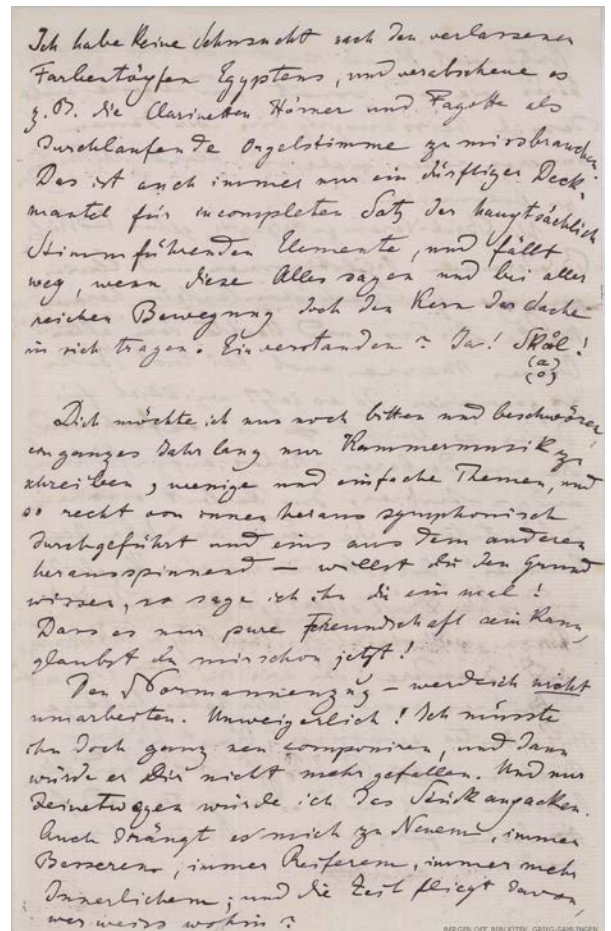 Ich habe keine Sehnsucht nach den verlassenen
Farbentöpfen Egyptens, und verabscheue es
z. B. die Clarinetten Hörner und Fagotte als
durchlaufende Orgelstimme zu missbrauchen.
Das ist auch immer nur ein dürftiger Deck-
mantel für incompleten Satz der hauptsächlich
stimmführenden Elemente, und fällt
weg, wenn diese Alles sagen und bei aller
reichen Bewegung doch den Kern der Sache
in sich tragen. Einverstanden? Ja! Skål!
(a)
(o)
Dich möchte ich nur noch bitten und beschwören,
ein ganzes Jahr lang nur Kammermusik zu
schreiben, wenige und einfache Themen, und
so recht von innen heraus symphonisch
durchgeführt und eins aus dem anderen
herausspinnend – willst du den Grund
wissen, so sage ich ihn dir einmal!
Dass es nur pure Freundschaft sein kann,
glaubst du mir schon jetzt!
Den Normannenzug – werde ich nicht
umarbeiten. Unweigerlich! Ich müsste
ihn doch ganz neu componiren, und dann
würde er Dir nicht mehr gefallen. Und nur
deinetwegen würde ich das Stück anpacken.
Auch drängt es mich zu Neuem, immer
Besserem, immer Reiferem, immer mehr
Innerlichem; und die Zeit fliegt davon,
wer weiss wohin?
BERGEN OFF. BIBLIOTEK, GRIEG-SAMLINGEN